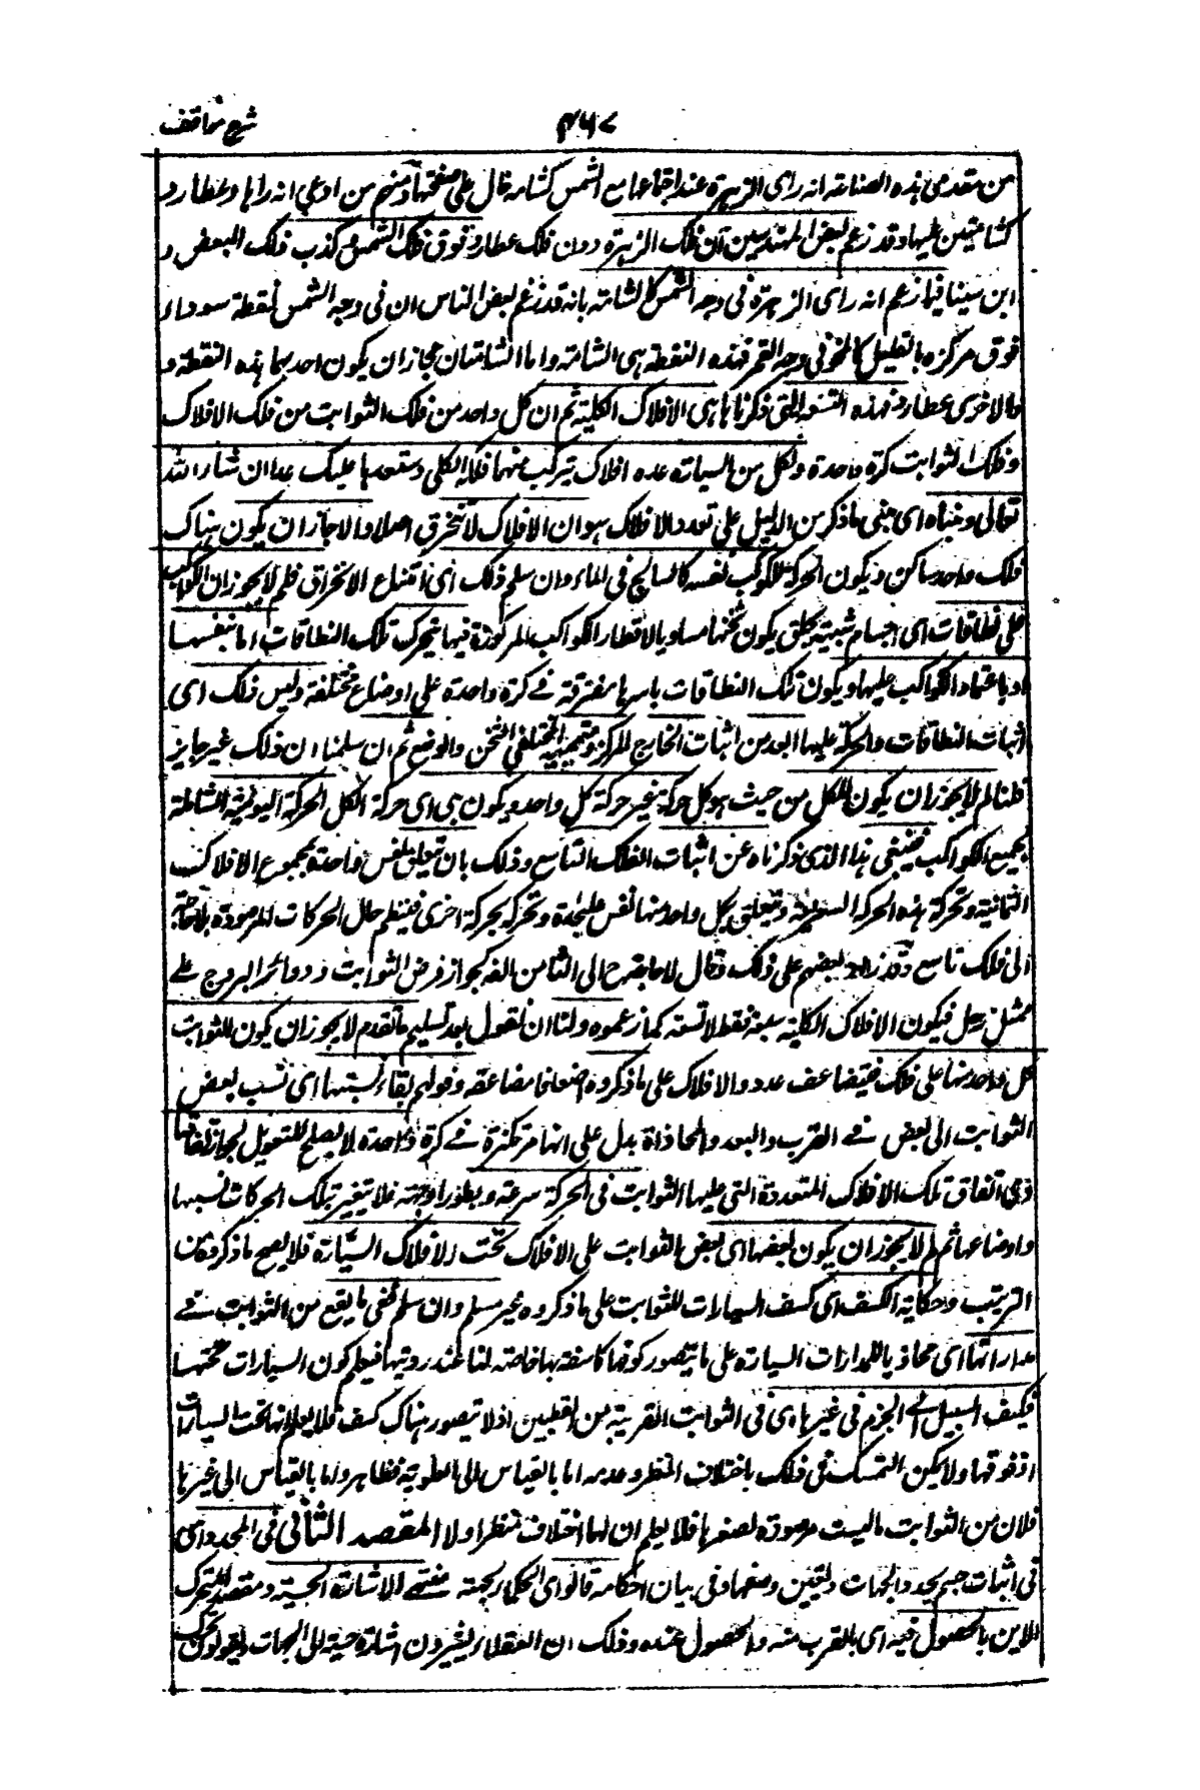 شرح مواقف
٤٦٧
من متقدمى هذه الصناعة انه راى الزهرة عند اجتماعها مع الشمس كشامة قال على صفحتها ومنهم من ادعى انه راها وعطارد
كشامتين عليها وقد زعم بعض المهندسين ان فلك الزهرة دون فلك عطارد وفوق فلك الشمس وكذب ذلك البعض و
ابن سينا فيما زعم انه راى الزهرة فى وجه الشمس كالشامة بانه قد زعم بعض الناس ان فى وجه الشمس نقطة سوداء
فوق مركزه بالقليل كالمحو فى وجه القمر فهذه النقطة هى الشامة واما الشامتان فجاز ان يكون احدهما هذه النقطة و
والاخرى عطارد فهذه التسعة التى ذكرناها هى الافلاك الكلية ثم ان كل واحد من فلك الثوابت من فلك الافلاك
وفلك الثوابت كرة واحدة ولكل من السيارة عدة افلاك يتركب منها فلكه الكلى وستعدها عليك عدا ان شاء الله
تعالى ومبناه اى مبنى ما ذكر من الدليل على تعدد الافلاك هو ان الافلاك لا تنخرق اصلا والا جاز ان يكون هناك
فلك واحد ساكن ويكون الحركة للكوكب نفسه كالسابح فى الماء وان سلم ذلك اى امتناع الانخراق فلم لا يجوز ان الكواكب
على نطاقات اى اجسام شبيهة بحلق يكون ثخنها مساويا لاقطار الكواكب المركوزة فيها فيتحرك تلك النطاقات اما بنفسها
او باعتماد الكواكب عليها ويكون تلك النطاقات باسرها مفترقة فى كرة واحدة على اوضاع مختلفة وليس ذلك اى
اثبات النطاقات والحركة عليها ابعد من اثبات الخارج المركز ومتمميه المختلفى الثخن والوضع ثم ان سلمنا ان ذلك غير جايز
قلنا لم لا يجوز ان يكون للكل من حيث هو كل حركة غير حركة كل واحد ويكون هى اى حركة الكل الحركة اليومية الشاملة
لجميع الكواكب فيغنى هذا الذى ذكرناه عن اثبات الفلك التاسع وذلك بان تتعلق نفس واحدة بمجموع الافلاك
الثمانية وتحركة هذه الحركة السريعة وتتعلق بكل واحد منها نفس عليحدة وتحركه بحركة اخرى فينتظم حال الحركات المرصودة بلا حاجة
الى فلك تاسع وقد زاد بعضهم على ذلك وقال لا حاجة ح الى الثامن الفه لجواز فرض الثوابت ودوائر البروج على
ممثل زحل فيكون الافلاك الكلية سبعة فقط لا تسعة كما زعموه ولنا ان نقول بعد تسليم ما تقدم لا يجوز ان يكون للثوابت
كل واحد منها على فلك فيتضاعف عدد الافلاك على ما ذكروه اضعافا مضاعفة وقولهم بقاء نسبتها اى نسب بعض
الثوابت الى بعض فى القرب والبعد والمحاذاة يدل على انها مرتكزة فى كرة واحدة لا يصلح للتعويل لجواز اتفاقها
اى اتفاق تلك الافلاك المتعددة التى عليها الثوابت فى الحركة سرعة وبطوءا وجهة فلا يتغير بتلك الحركات نسبها
واوضاعها ثم لم لا يجوز ان يكون بعضها اى بعض الثوابت على الافلاك تحت الافلاك السيارة فلا يصح ما ذكروه فى
الترتيب وحكاية الكسف اى كسف السيارات للثوابت على ما ذكروه غير مسلم وان سلم ففى ما يقع من الثوابت فى
مداراتها اى محاذيا للمدارات السيارة على ما يتصور كونها كاسفة بها خاصة لنا عند رويتها فيعلم كون السيارات تحتها
فكيف السبيل الى الجزم فى غيرها اى فى الثوابت القريبة من القطبين اذ لا يتصور هناك كسف فلا يعلم انها تحت السيارات
او فوقها ولا يمكن التمسك فى ذلك باختلاف المنظر وعدمه اما بالقياس الى العلوية فظاهر واما بالقياس الى غيرها
فلان من الثوابت ما ليست مرصودة لصغرها فلا يعلم ان لها اختلاف منظر او لا المقصد الثانى فى المحدد اى
فى اثبات جسم يحدد الجهات وتعيين وضعها وفى بيان احكامه قالوا اى الحكماء الجهة منتهى الاشارة الحسية ومقصد المتحرك
الاين بالحصول فيه اى بالقرب منه والحصول عنده وذلك ان العقلاء يشيرون اشارة حسية الى الجهات ويقولون تحرك